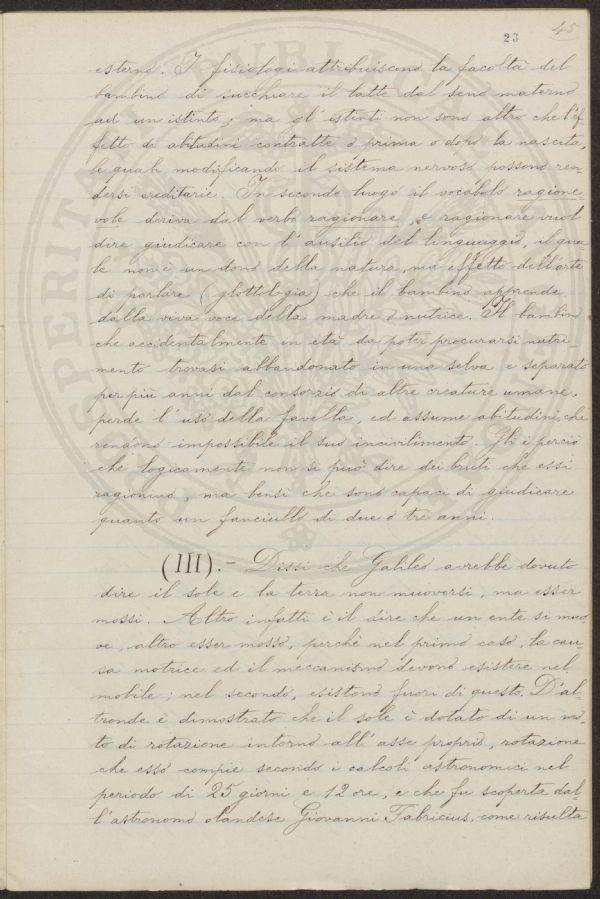 23 45
esterno. I fisiologi attribuiscono la facoltà del
bambino di succhiare il latte dal seno materno
ad un istinto; ma gl'istinti non sono altro che l'ef-
fetto di abitudini contratte o prima o dopo la nascita,
le quali modificando il sistema nervoso possono ren-
dersi ereditarie. In secondo luogo il vocabolo ragione-
vole deriva dal verbo ragionare, e ragionare vuol
dire giudicare con l'ausilio del linguaggio, il qua
le non è un dono della natura, ma effetto dell'arte
di parlare (glottologia) che il bambino apprende
dalla viva voce della madre o nutrice. Il bambino
che accidentalmente in età da poter procurarsi nutri
mento trovasi abbandonato in una selva e separato
per più anni dal consorzio di altre creature umane,
perde l'uso della favella, ed assume abitudini, che
rendono impossibile il suo incivilimento. Gli è perciò
che logicamente non si può dire dei bruti che essi
ragionino, ma bensì che sono capaci di giudicare
quanto un fanciullo di due o tre anni.
(III).- Dissi che Galileo avrebbe dovuto
dire il sole e la terra non muoversi, ma esser
mossi. Altro infatti è il dire che un ente si muo
ve, altro esser mosso, perchè nel primo caso, la cau-
sa motrice ed il meccanismo devono esistere nel
mobile; nel secondo, esistono fuori di questo. D'al-
tronde è dimostrato che il sole è dotato di un mo-
to di rotazione intorno all'asse proprio, rotazione
che esso compie secondo i calcoli astronomici nel
periodo di 25 giorni e 12 ore, e che fu scoperta dal-
l'astronomo olandese Giovanni Fabricius, come risulta